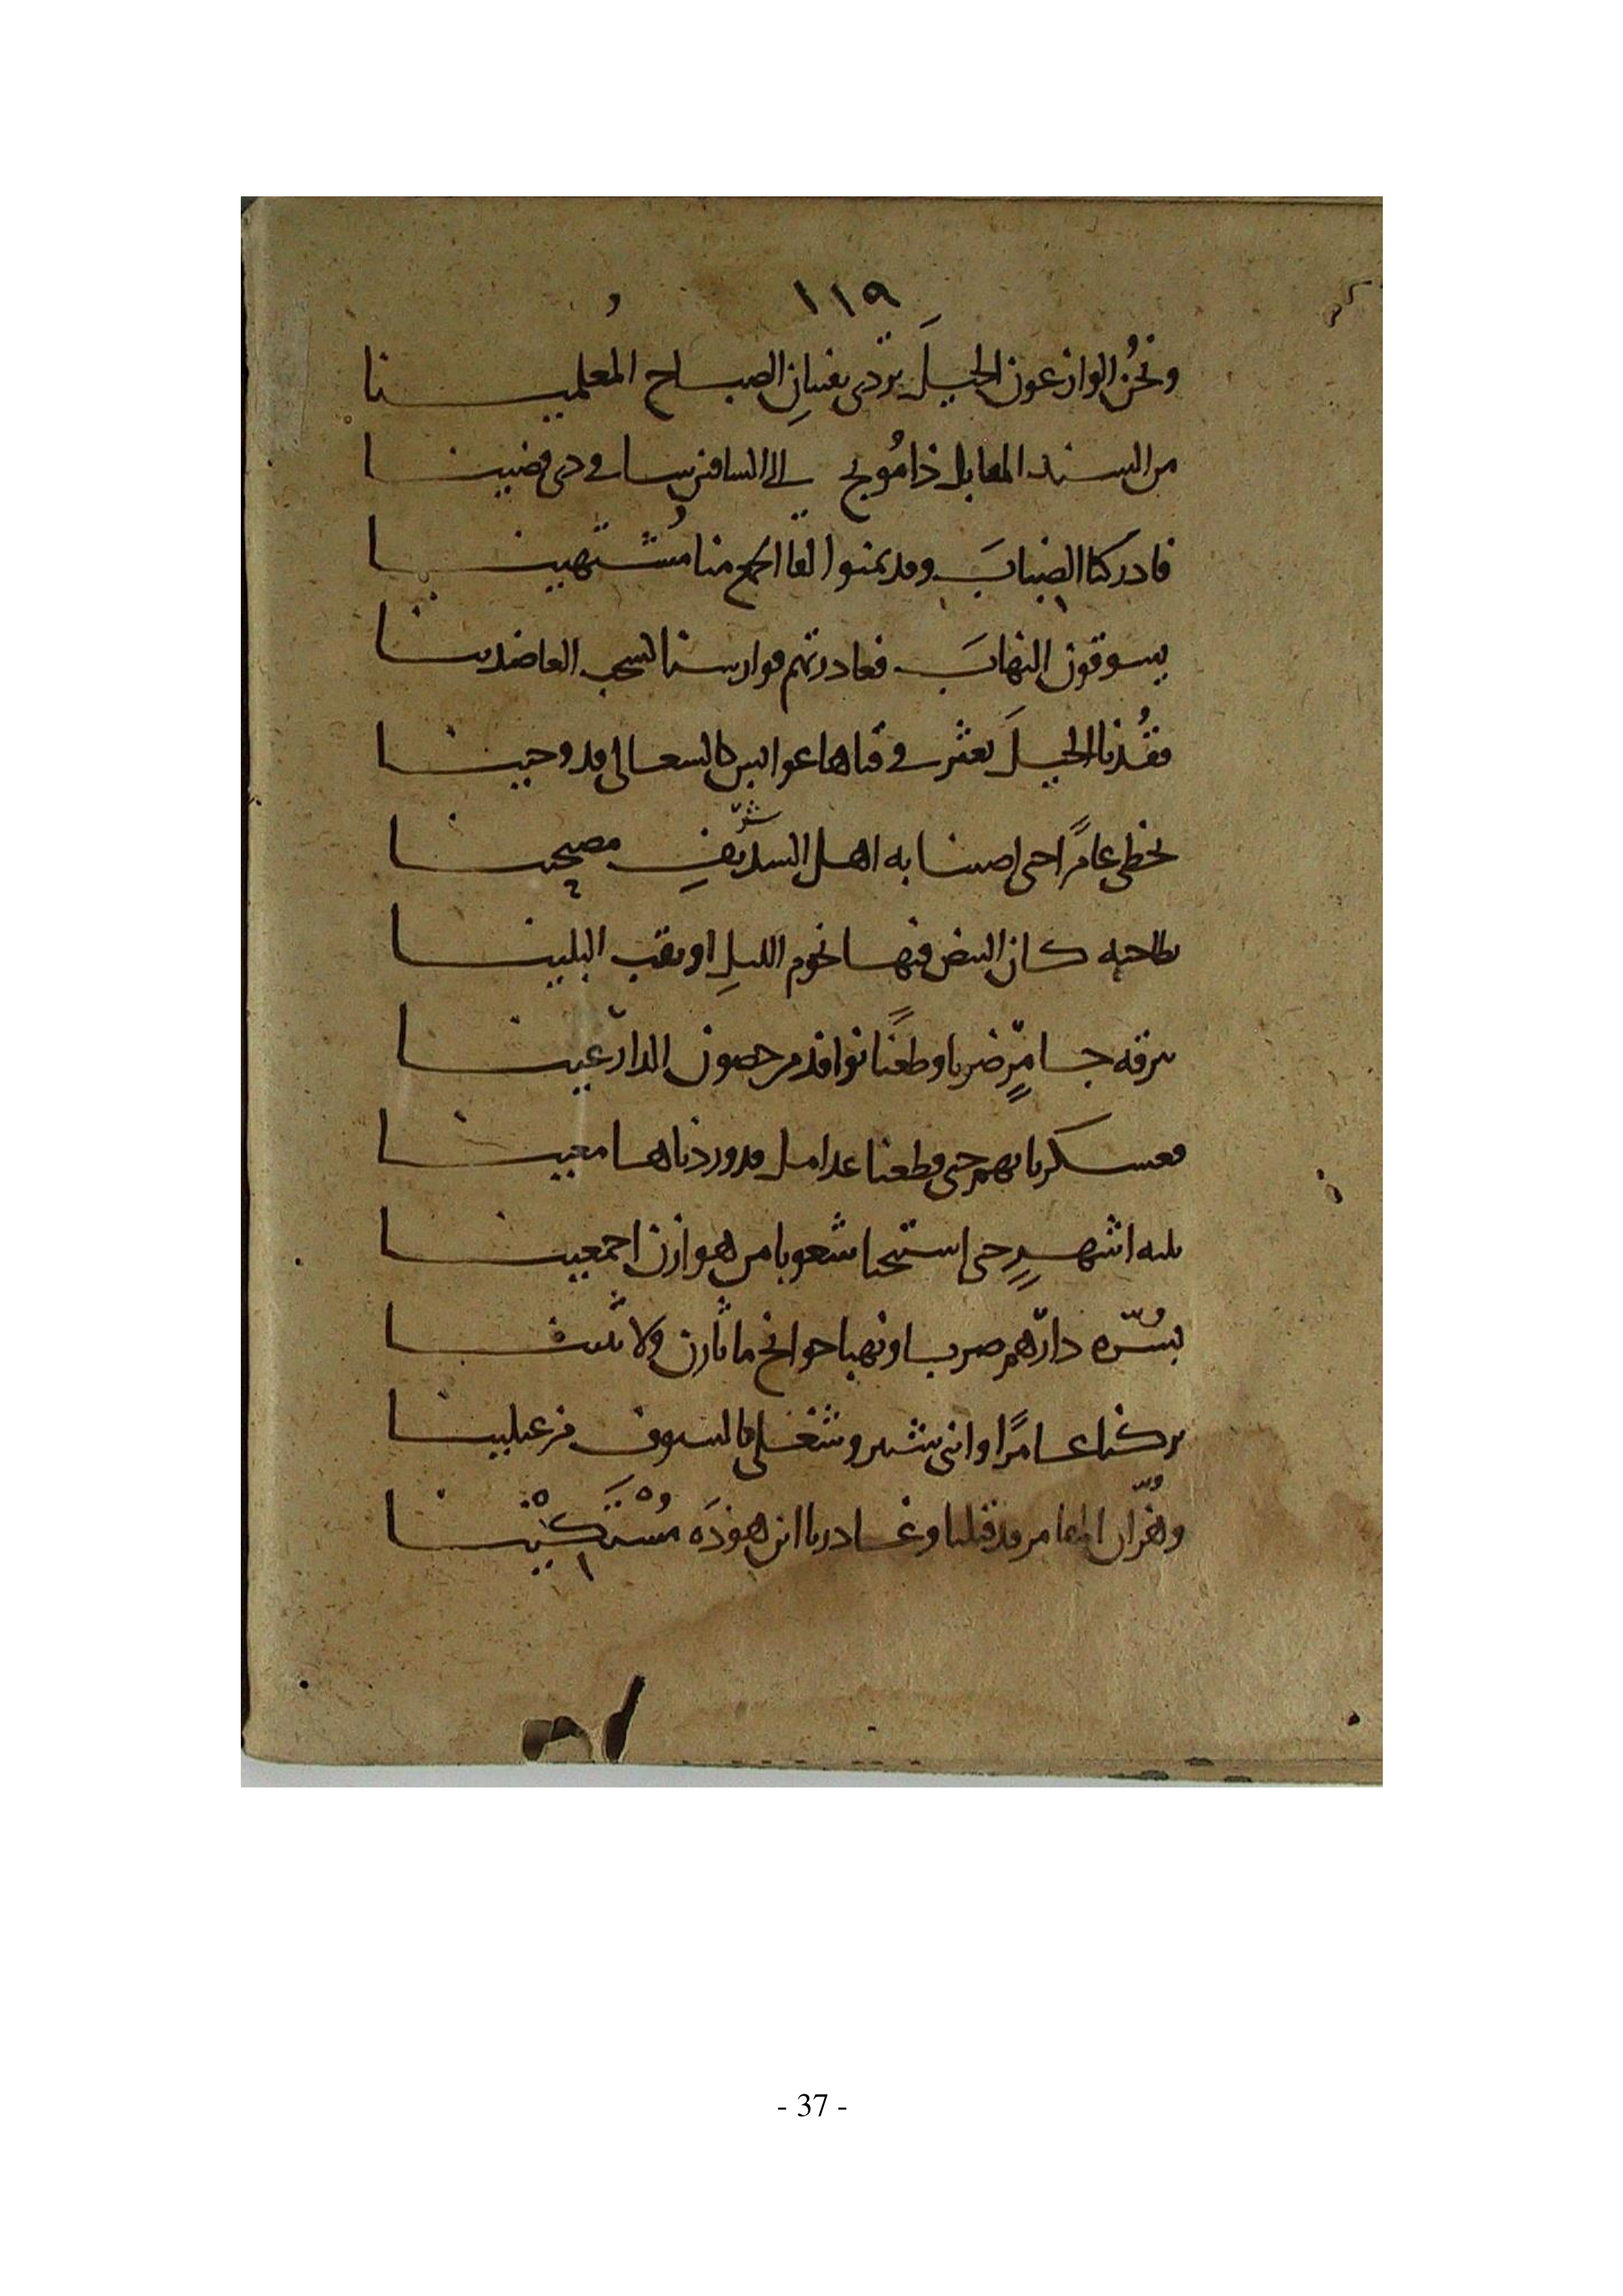 ١١٩
ونحنُ الوازعون الخيلَ تردى بفتيانِ الصباح المُعلمينا
من السند المقابل ذا مُريخ الى السافين سا فى دى قضينا
فادركنا الضبابَ وقد تمنوا لقا الجمع منا مُشتهينا
يسوقون النهابَ فغادرتهم فوارسنا لسحب العاضدينا
فقُدنا الخيلَ تعثر في قناها عوابس كالسعالى قد وجينا
تخطى عامرًا حتى اصبنا به اهل السديفِ مصبحينا
كان البيض فيها نجوم الليلِ او البلينا
جامرٍ ضربا وطعنًا نوافذ من حصون الدارعينا
فعسكرنا بهم حتى قطعنا عدامل قد وردناها معينا
ثلثه اشهرٍ حتى استبحنا شعوبا من هوازن اجمعينا
دارهم ضربا ونهبا جوانح ما ثارن ولا
تركنا عامرًا وابنى شتير وشغلى بالسيوف مزعبلينا
وهزان المغامر قد قتلنا وغادرنا ابن هوذَه مُسْتَكْينا
- 37 -